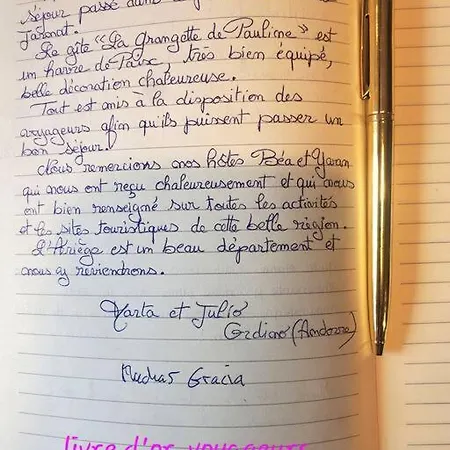 séjour passé dans
Jarnat.
Le gîte « La Grangette de Pauline » est
un havre de Paix, très bien équipé,
belle décoration chaleureuse.
Tout est mis à la disposition des
voyageurs afin qu'ils puissent passer un
bon séjour.
Nous remercions nos hôtes Béa et Yavan
qui nous ont reçu chaleureusement et qui nous
ont bien renseigné sur toutes les activités
et les sites touristiques de cette belle région.
L'Ariège est un beau département et
nous y reviendrons.
Marta et Julio
Ordino (Andorre)
Muchas Gracia
livre d'or voyageurs